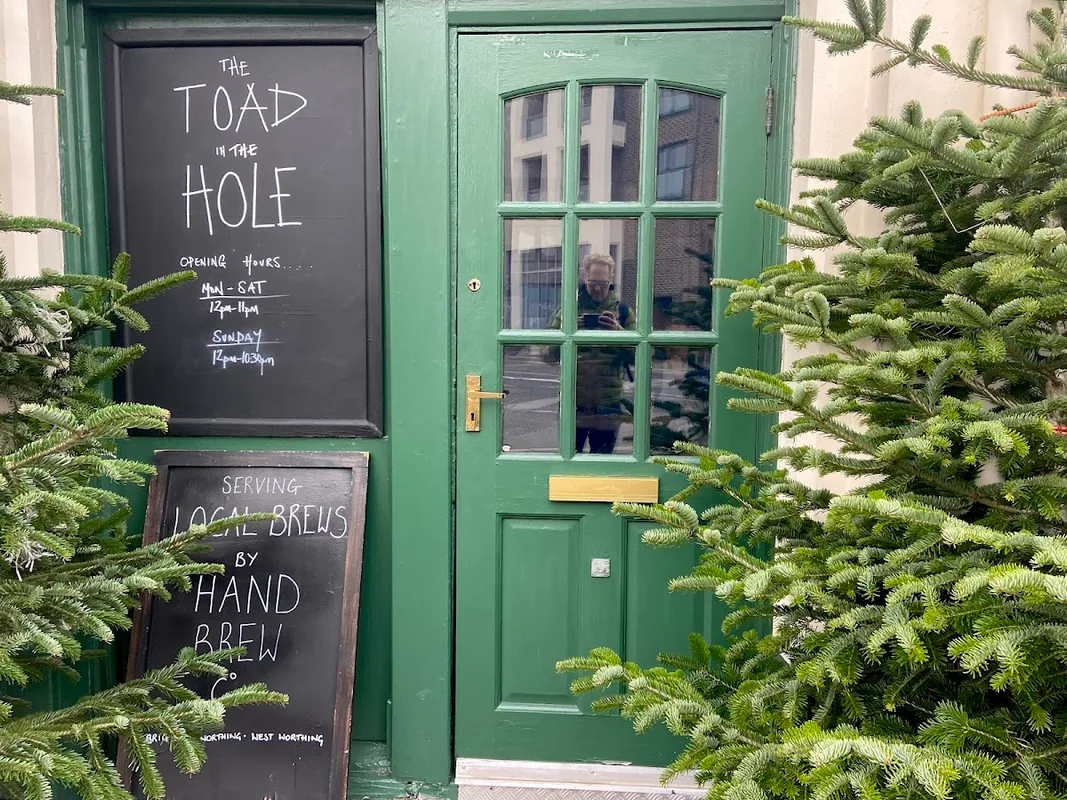 THE
TOAD
IN THE
HOLE
OPENING HOURS.....
MON - SAT
12pm-11pm
SUNDAY
12pm-1030pm
SERVING
LOCAL BREWS
BY
HAND
BREW
Co
WORTHING • WEST WORTHING